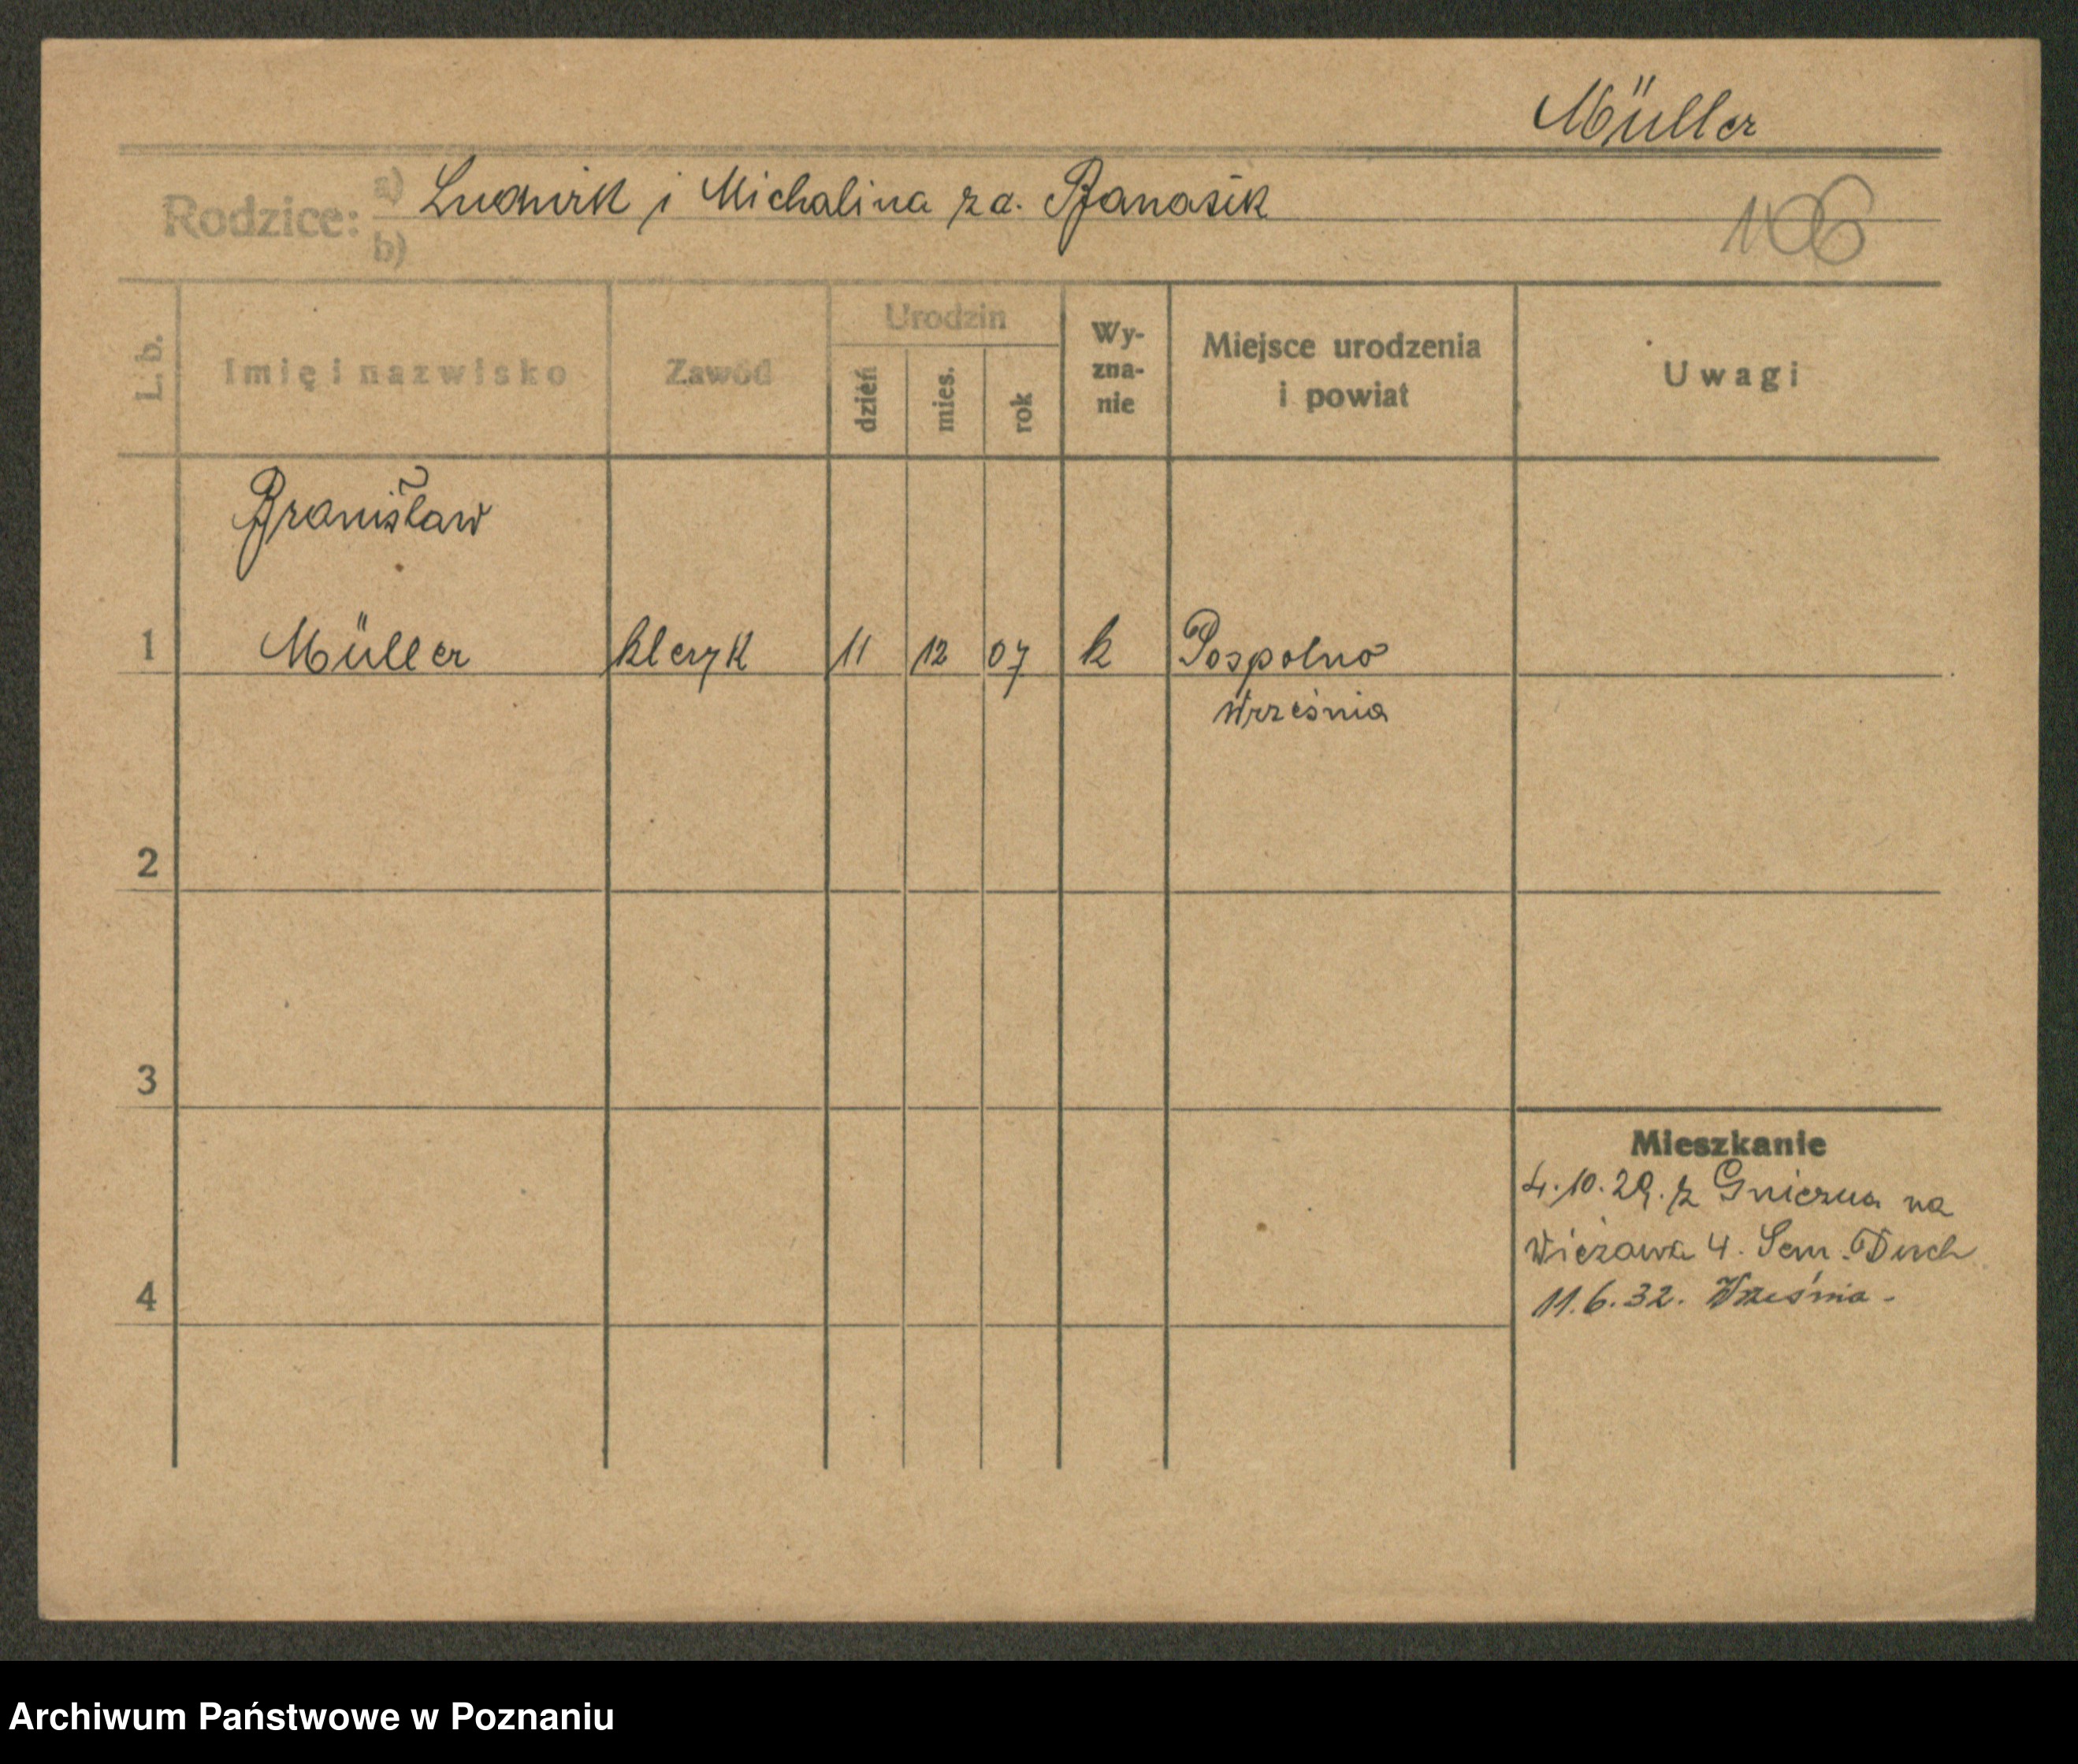 Müller
Rodzice: a) Ludwik i Michalina zd. Banasik
b)
106
L. b. Imię i nazwisko Zawód Urodzin dzień mies. rok Wy-zna-nie Miejsce urodzenia i powiat Uwagi
Bronisław
1 Müller kleryk 11 12 07 k Pospolno
Września
2
3
Mieszkanie
4.10.29. z Gniezna na
Wieżowa 4. Sem. Duch
4 11.6.32. Września -
Archiwum Państwowe w Poznaniu